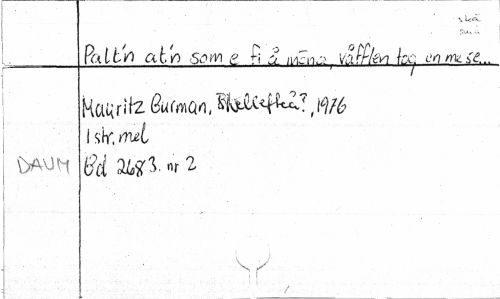 skä
små
Palt'n at'n som e fi å måna, våfflen tog en me se...
Mauritz Burman, Skellefteå?, 1976
1 str. mel
DAUM Bd 2683. nr 2